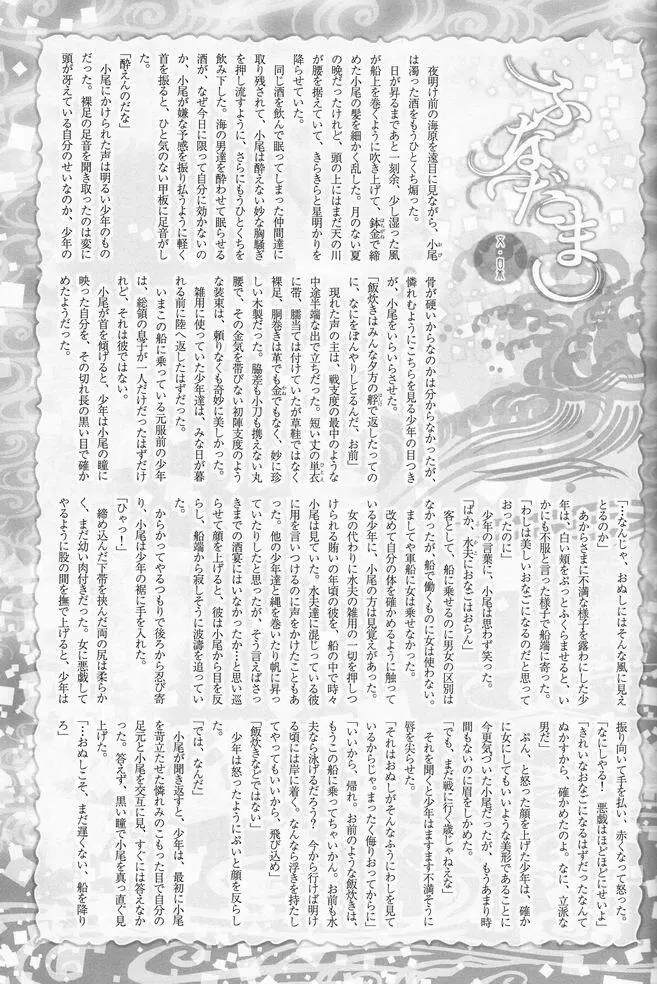 ふなだま
夜明け前の海原を遠目に見ながら、小尾
は濁った酒をもうひとくち煽った。
日が昇るまであと一刻余、少し湿った風
が船上を巻くように吹き上げて、鉢金で締
めた小尾の髪を細かく乱した。月のない夏
の晩だったけれど、頭の上にはまだ天の川
が腰を据えていて、きらきらと星明かりを
降らせていた。
同じ酒を飲んで眠ってしまった仲間達に
取り残されて、小尾は酔えない妙な胸騒ぎ
を押し流すように、さらにもうひとくちを
飲み下した。海の男達を酔わせて眠らせる
酒が、なぜ今日に限って自分に効かないの
か、小尾が嫌な予感を振り払うように軽く
首を振ると、ひと気のない甲板に足音がし
た。
「酔えんのだな」
小尾にかけられた声は明るい少年のもの
だった。裸足の足音を聞き取ったのは変に
頭が冴えている自分のせいなのか、少年の
骨が硬いからなのかは分からなかったが、
憐れむようにこちらを見る少年の目つき
が、小尾をいらいらさせた。
「飯炊きはみんな夕方の艀で返したっての
に、なにをぼんやりしとるんだ、お前」
現れた声の主は、戦支度の最中のような
中途半端な出で立ちだった。短い丈の単衣
に帯、臑当ては付けていたが草鞋ではなく
裸足、胴巻きは革でも金でもなく、妙に珍
しい木製だった。脇差も小刀も携えない丸
腰で、その金気を帯びない初陣支度のよう
な装束は、頼りなくも奇妙に美しかった。
雑用に使っていた少年達は、みな日が暮
れる前に陸へ返したはずだった。
いまこの船に乗っている元服前の少年
は、総領の息子が一人だけだったはずだけ
れど、それは彼ではない。
小尾が首を傾げると、少年は小尾の瞳に
映った自分を、その切れ長の黒い目で確か
めたようだった。
「…なんじゃ、おぬしにはそんな風に見え
とるのか」
あからさまに不満な様子を露わにした少
年は、白い頬をぷっとふくらませると、い
かにも不服と言った様子で船端に寄った。
「わしは美しいおなごになるのだと思って
おったのに」
少年の言葉に、小尾は思わず笑った。
「ばか、水夫におなごはおらん」
客として、船に乗せるのに男女の区別は
なかったが、船で働くものに女は使わない。
ましてや軍船に女は乗せなかった。
改めて自分の体を確かめるように触って
いる少年に、小尾の方は見覚えがあった。
女の代わりに水夫の雑用の一切を押しつ
けられる賄いの年頃の彼を、船の中で時々
小尾は見ていた。水夫達に混じっている彼
に用を言いつけるのに声をかけたこともあ
った。他の少年達と縄を巻いたり帆に昇っ
ていたりしたと思ったが、そう言えばさっ
きまでの酒宴にはいなかったか…と思い巡
らせて顔を上げると、彼は小尾から目を反
らし、船端から寂しそうに波濤を追ってい
た。
からかってやるつもりで後ろから忍び寄
り、小尾は少年の裾に手を入れた。
「ひゃっ！」
締め込んだ下帯を挟んだ両の尻は柔らか
く、まだ幼い肉付きだった。女に悪戯して
やるように股の間を撫で上げると、少年は
振り向いて手を払い、赤くなって怒った。
「なにしやる！　悪戯はほどほどにせいよ」
「きれいなおなごになるはずだったなんて
ぬかすから、確かめたのよ。なに、立派な
男だ」
ぷん、と怒った顔を上げた少年は、確か
に女にしてもいいような美形であることに
今更気づいた小尾だったが、もうあまり時
間もないのに眉をしかめた。
「でも、まだ戦に行く歳じゃねえな」
それを聞くと少年はますます不満そうに
唇を尖らせた。
「それはおぬしがそんなふうにわしを見て
いるからじゃ。まったく侮りおってからに」
「いいから、帰れ。お前のような飯炊きは、
もうこの船に乗ってちゃいかん。お前も水
夫なら泳げるだろう？　今から行けば明け
る頃には岸に着く。なんなら浮きを持たし
てやってもいいから、飛び込め」
「飯炊きなどではない」
少年は怒ったようにぷいと顔を反らし
た。
「では、なんだ」
小尾が聞き返すと、少年は、最初に小尾
を苛立たせた憐れみのこもった目で自分の
足元と小尾を交互に見、すぐには答えなか
った。答えず、黒い瞳で小尾を真っ直ぐ見
上げた。
「…おぬしこそ、まだ遅くない、船を降り
ろ」